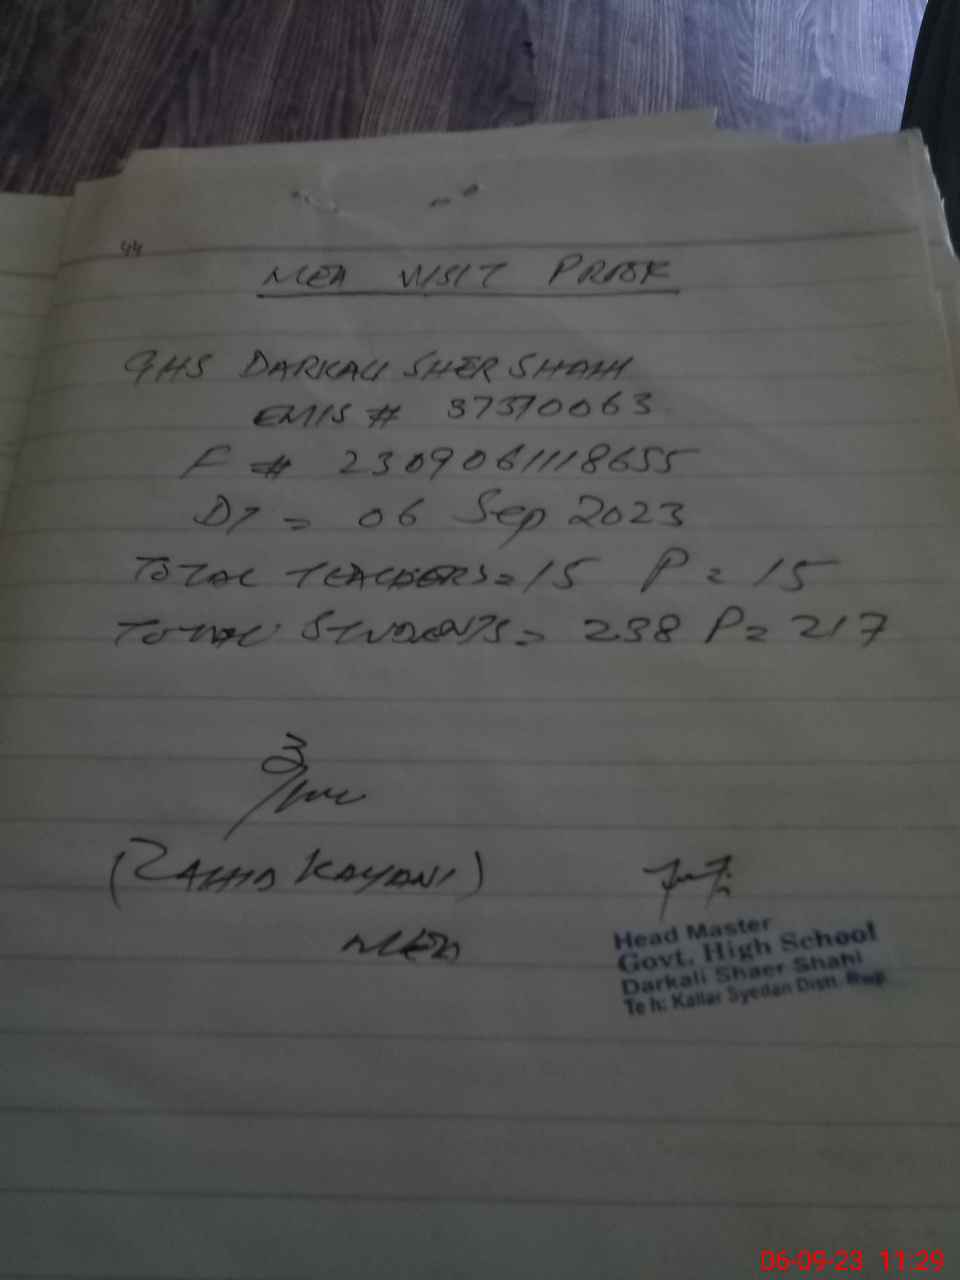 44
MEA VISIT PROOF
GHS DARKALI SHER SHAHI
EMIS # 37370063
F # 2309061118655
DT = 06 Sep 2023
TOTAL TEACHERS = 15 P = 15
TOTAL STUDENTS = 238 P = 217
(ZAHID KAYANI)
MEA
Head Master
Govt. High School
Darkali Shaer Shahi
Teh: Kallar Syedan Distt. Rwp
06-09-23 11:29